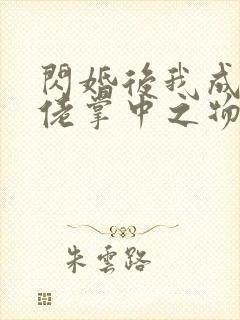 閃婚後我成
佬掌中之物
朱雲路